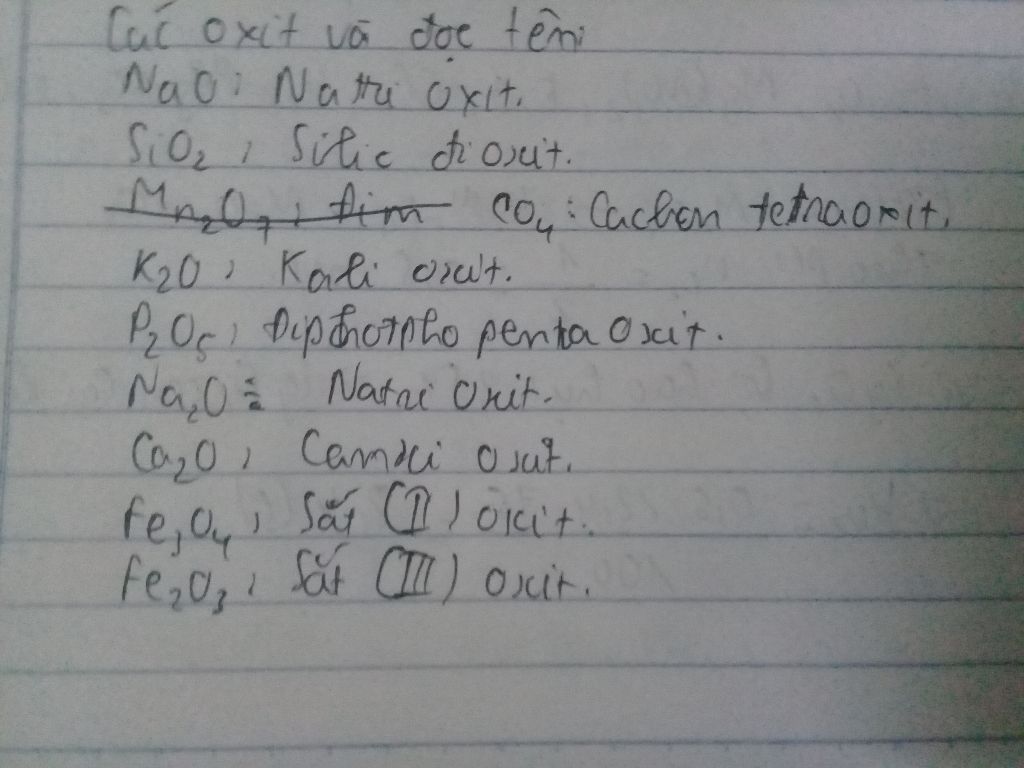 Các oxit và đọc tên:
NaO: Natri oxit.
SiO₂: Silic đi oxit.
Mn₂O₇: Đim CO₄: Cacbon tetraoxit.
K₂O: Kali oxit.
P₂O₅: Điphotpho penta oxit.
Na₂O: Natri oxit.
Ca₂O: Canxi oxit.
Fe₃O₄: Sắt (II) oxit.
Fe₂O₃: Sắt (III) oxit.